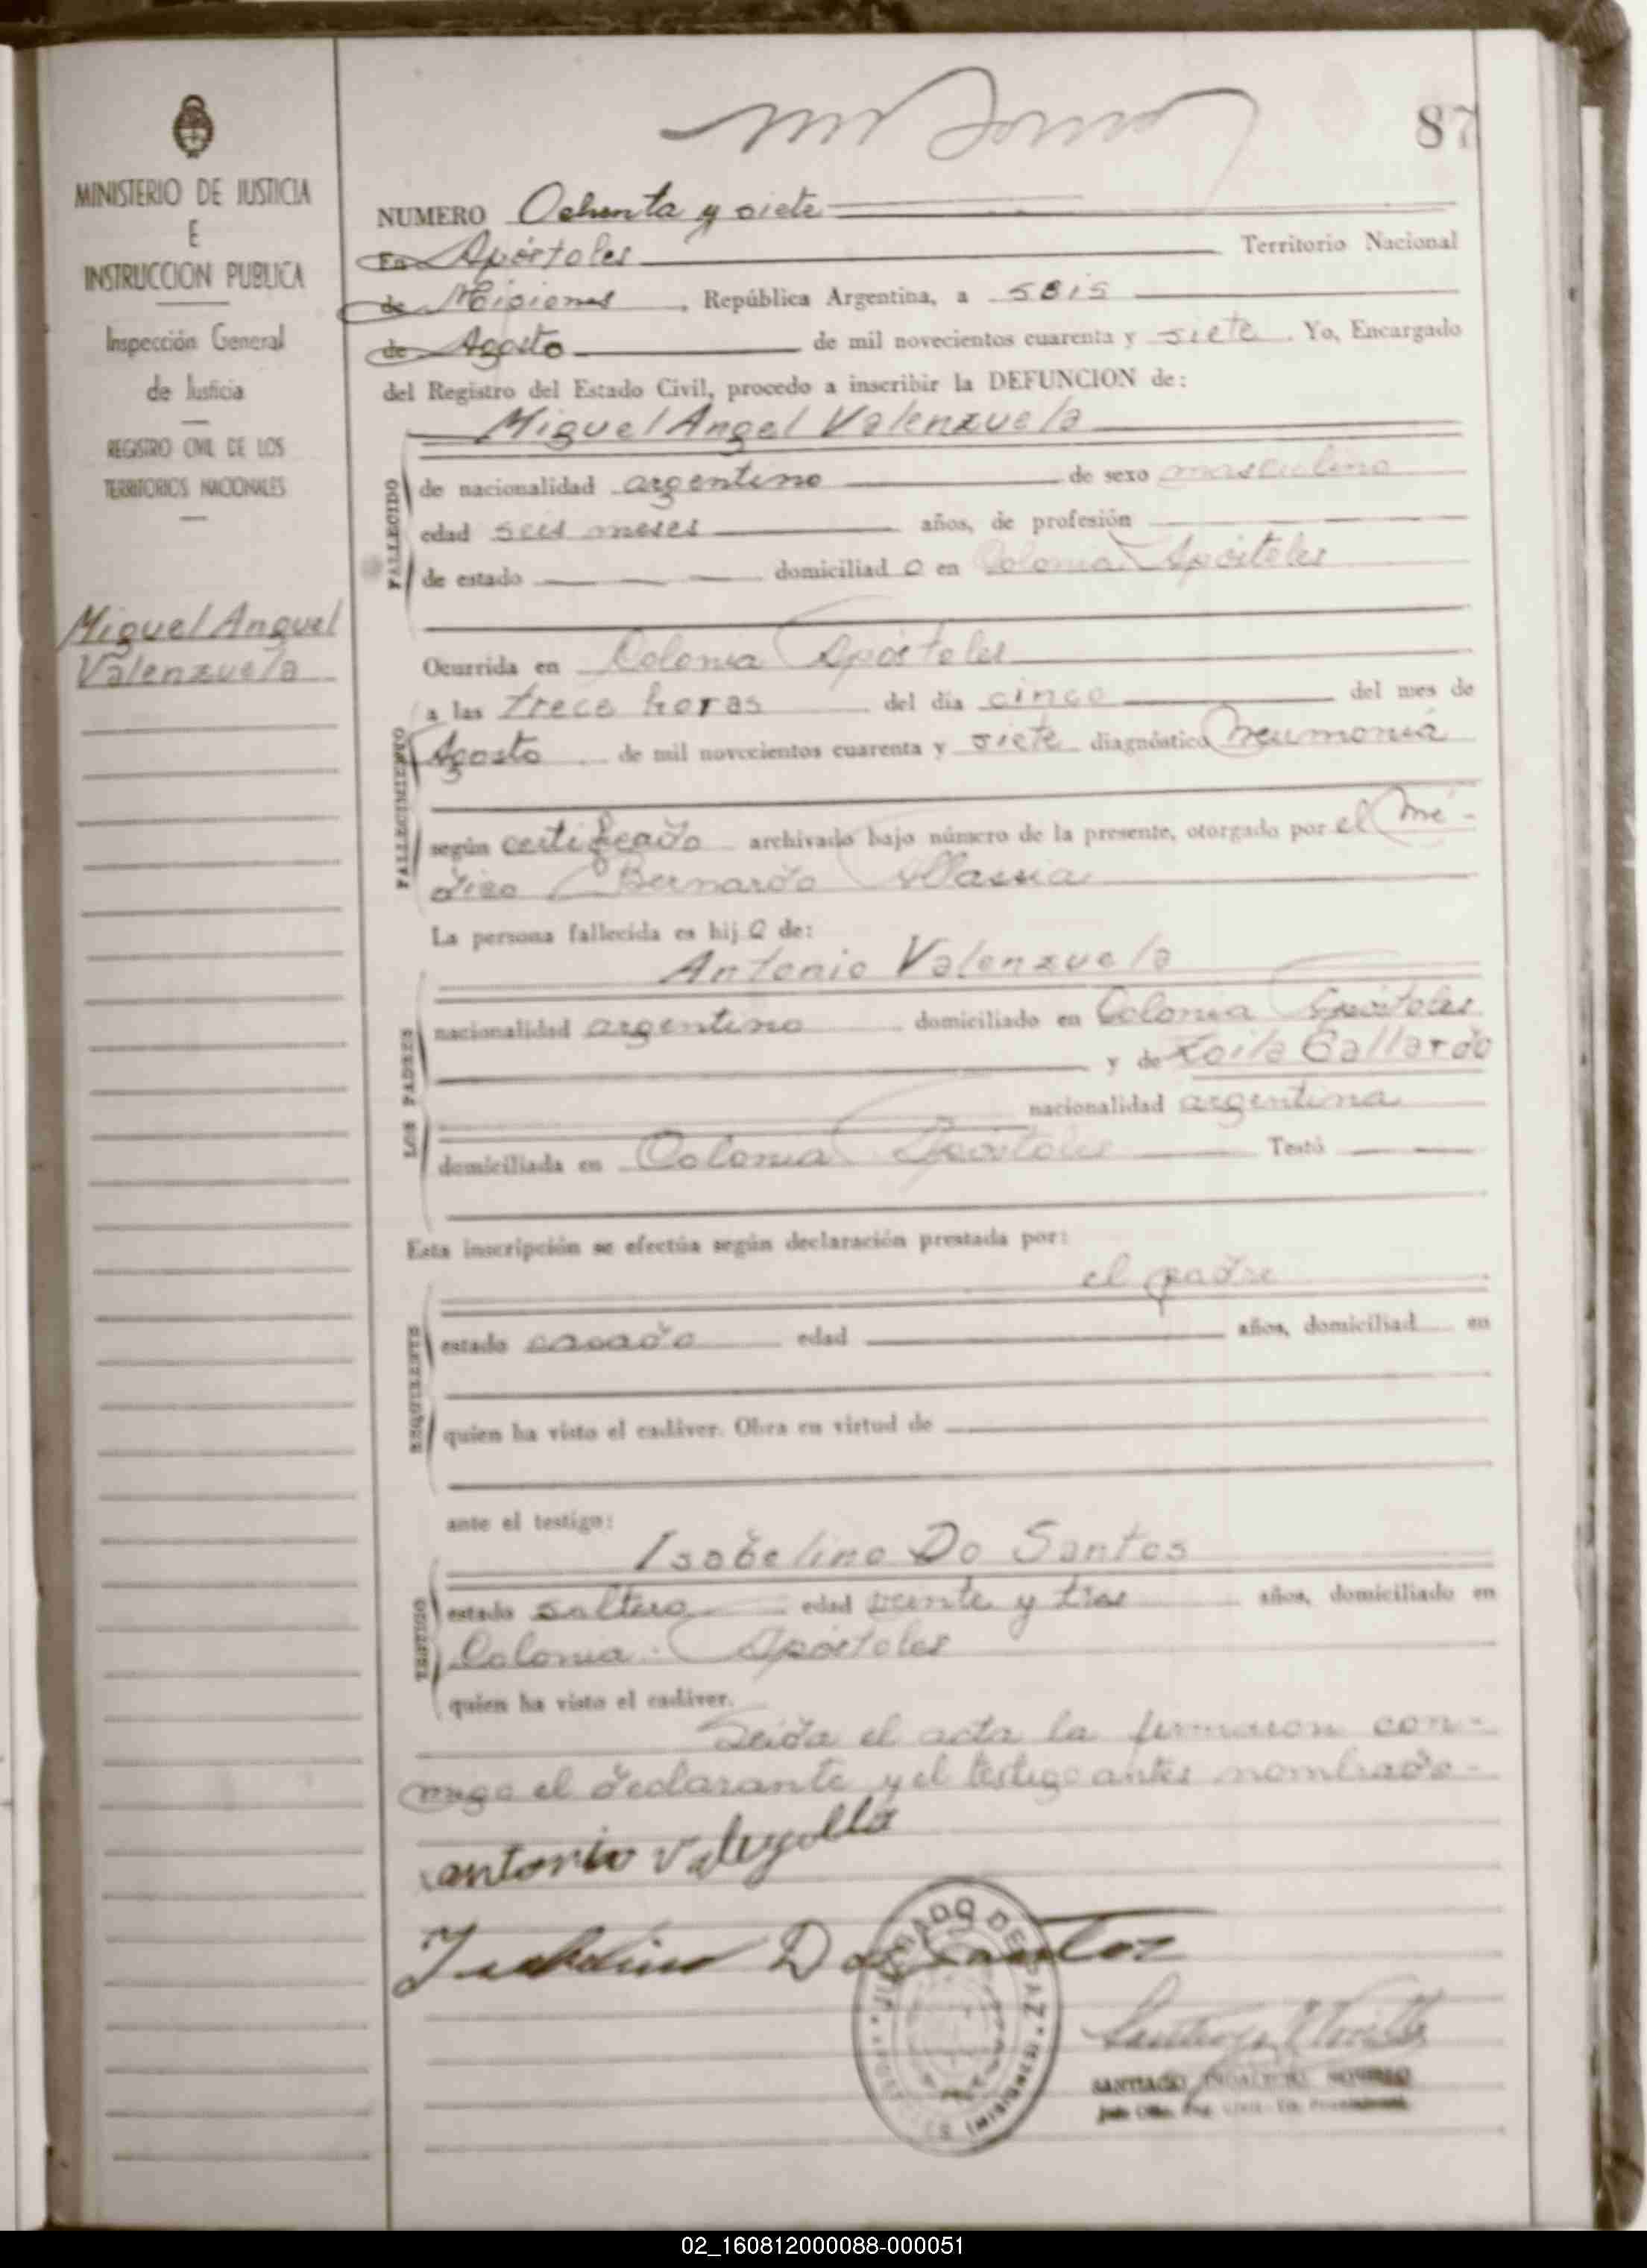 87
MINISTERIO DE JUSTICIA
E
INSTRUCCION PUBLICA
Inspección General
de Justicia
REGISTRO CIVIL DE LOS
TERRITORIOS NACIONALES
Miguel Anguel
Valenzuela
NUMERO Ochenta y siete
En Apóstoles Territorio Nacional
de Misiones, República Argentina, a seis
de Agosto de mil novecientos cuarenta y siete. Yo, Encargado
del Registro del Estado Civil, procedo a inscribir la DEFUNCION de:
Miguel Angel Valenzuela
FALLECIDO
de nacionalidad argentino de sexo masculino
edad seis meses años, de profesión
de estado domiciliado en Colonia Apóstoles
FALLECIMIENTO
Ocurrida en Colonia Apóstoles
a las trece horas del día cinco del mes de
Agosto de mil novecientos cuarenta y siete diagnóstico neumonia
según certificado archivado bajo número de la presente, otorgado por el mé-
dico Bernardo
La persona fallecida es hijo de:
Antonio Valenzuela
LOS PADRES
nacionalidad argentino domiciliado en Colonia Apóstoles
y de Zoila Gallardo
nacionalidad argentina
domiciliada en Colonia Apóstoles Testó
Esta inscripción se efectúa según declaración prestada por:
el padre
REQUIRENTE
estado casado edad años, domiciliad en
quien ha visto el cadáver. Obra en virtud de
ante el testigo:
Isabelino Do Santos
TESTIGO
estado soltero edad veinte y tres años, domiciliado en
Colonia Apóstoles
quien ha visto el cadáver.
Leida el acta la firmaron con-
migo el declarante y el testigo antes nombrado-
antonio
Isabelino Do Santos
JUZGADO DE PAZ
(MISIONES)
SANTIAGO
02_160812000088-000051